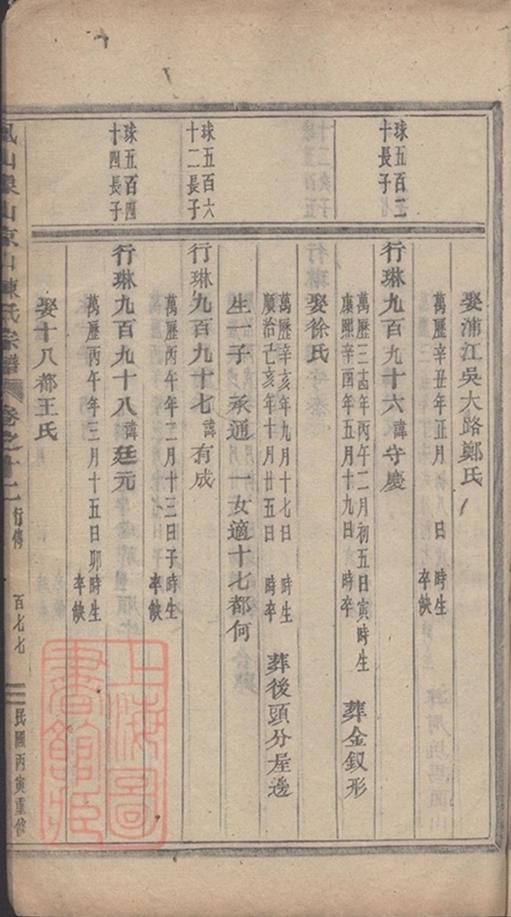 娶蒲江吳大路鄭氏
萬曆辛丑年正月初八日　時生
卒缺
球五百二
十長子
行琳九百九十六諱守慶
萬曆三十四年丙午二月初五日寅時生
康熙辛酉年五月十九日　時卒
葬金釵形
娶徐氏
萬曆辛亥年九月十七日　時生
順治己亥年十月廿五日　時卒
葬後頭分屋邊
生一子　承通　一女適十七都何
球五百六
十二長子
行琳九百九十七諱有成
萬曆丙午年二月十三日子時生
卒缺
球五百四
十四長子
行琳九百九十八諱廷元
萬曆丙午年三月十五日卯時生
卒缺
娶十八都王氏
山京山陳氏宗譜　卷之十二　行傳　百七七　民國丙寅重修
上海圖
書館藏